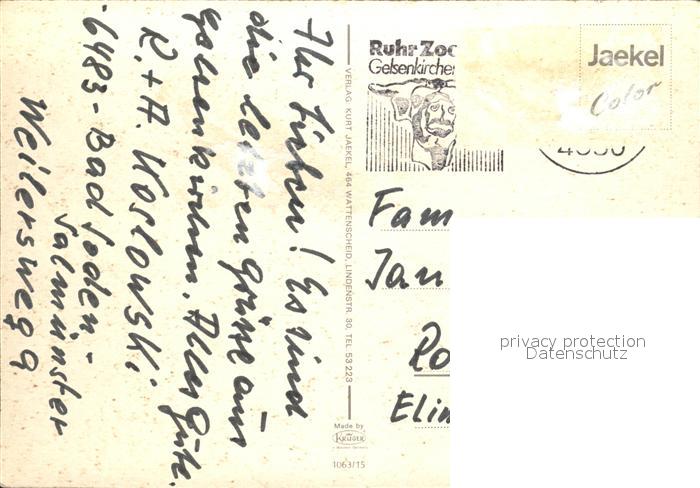 Ihr Lieben! Es sind
die letzten Grüße aus
Gelsenkirchen. Alles Gute.
R. + A. Koslowski
6483 - Bad Soden -
Salmünster
Weilersweg 9
VERLAG KURT JAEKEL, 464 WATTENSCHEID, LINDENSTR. 30, TEL 53223
Made by
KRÜGER
1063/15
Ruhr Zoo
Gelsenkirchen
Jaekel
Color
4650
Fam
Jan
Ro
Elim
privacy protection
Datenschutz